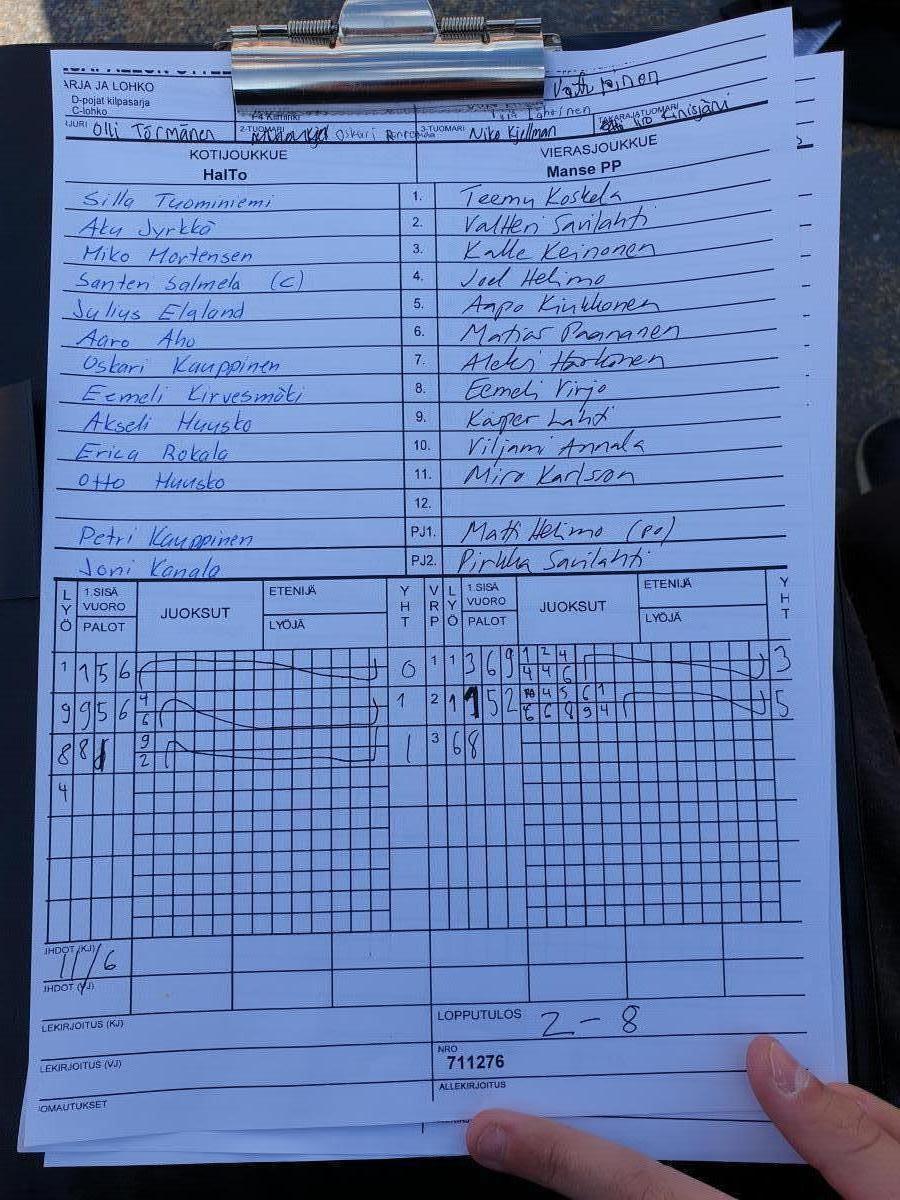 ARJA JA LOHKO
D-pojat kilpasarja
C-lohko
Olli Törmänen 2-TUOMARI Oskari 3-TUOMARI Niko Kjellman TAKARAJATUOMARI
KOTIJOUKKUE VIERASJOUKKUE
HalTo Manse PP
Silla Tuominiemi 1. Teemu Koskela
Aku Jyrkkä 2. Valtteri Savilahti
Miko Mortensen 3. Kalle Keinonen
Santeri Salmela (C) 4. Joel Helimo
Julius Elgland 5. Aapo Kinkkonen
Aaro Aho 6. Matias Paananen
Oskari Kauppinen 7. Aleksi Harkonen
Eemeli Kirvesmäki 8. Eemeli Virjo
Akseli Huusko 9. Kasper Lahti
Erica Rokala 10. Viljami Annala
Otto Huusko 11. Miro Karlsson
12.
Petri Kauppinen PJ1. Matti Helimo (PO)
Joni Kanala PJ2. Pirkka Savilahti
LYÖ 1.SISÄ VUORO PALOT JUOKSUT ETENIJÄ LYÖJÄ YHT VRP LYÖ 1.SISÄ VUORO PALOT JUOKSUT ETENIJÄ LYÖJÄ YHT
1 1 5 6 0 1 1 3 6 9 1 2 4 3
4 4 6
9 9 5 6 4 1 2 1 1 5 2 4 5 6 1 5
6 6 6 8 9 4
8 8 9 1 3 6 8
2
4
11/6
LEKIRJOITUS (KJ) LOPPUTULOS 2 - 8
LEKIRJOITUS (VJ) NRO 711276
OMAUTUKSET ALLEKIRJOITUS